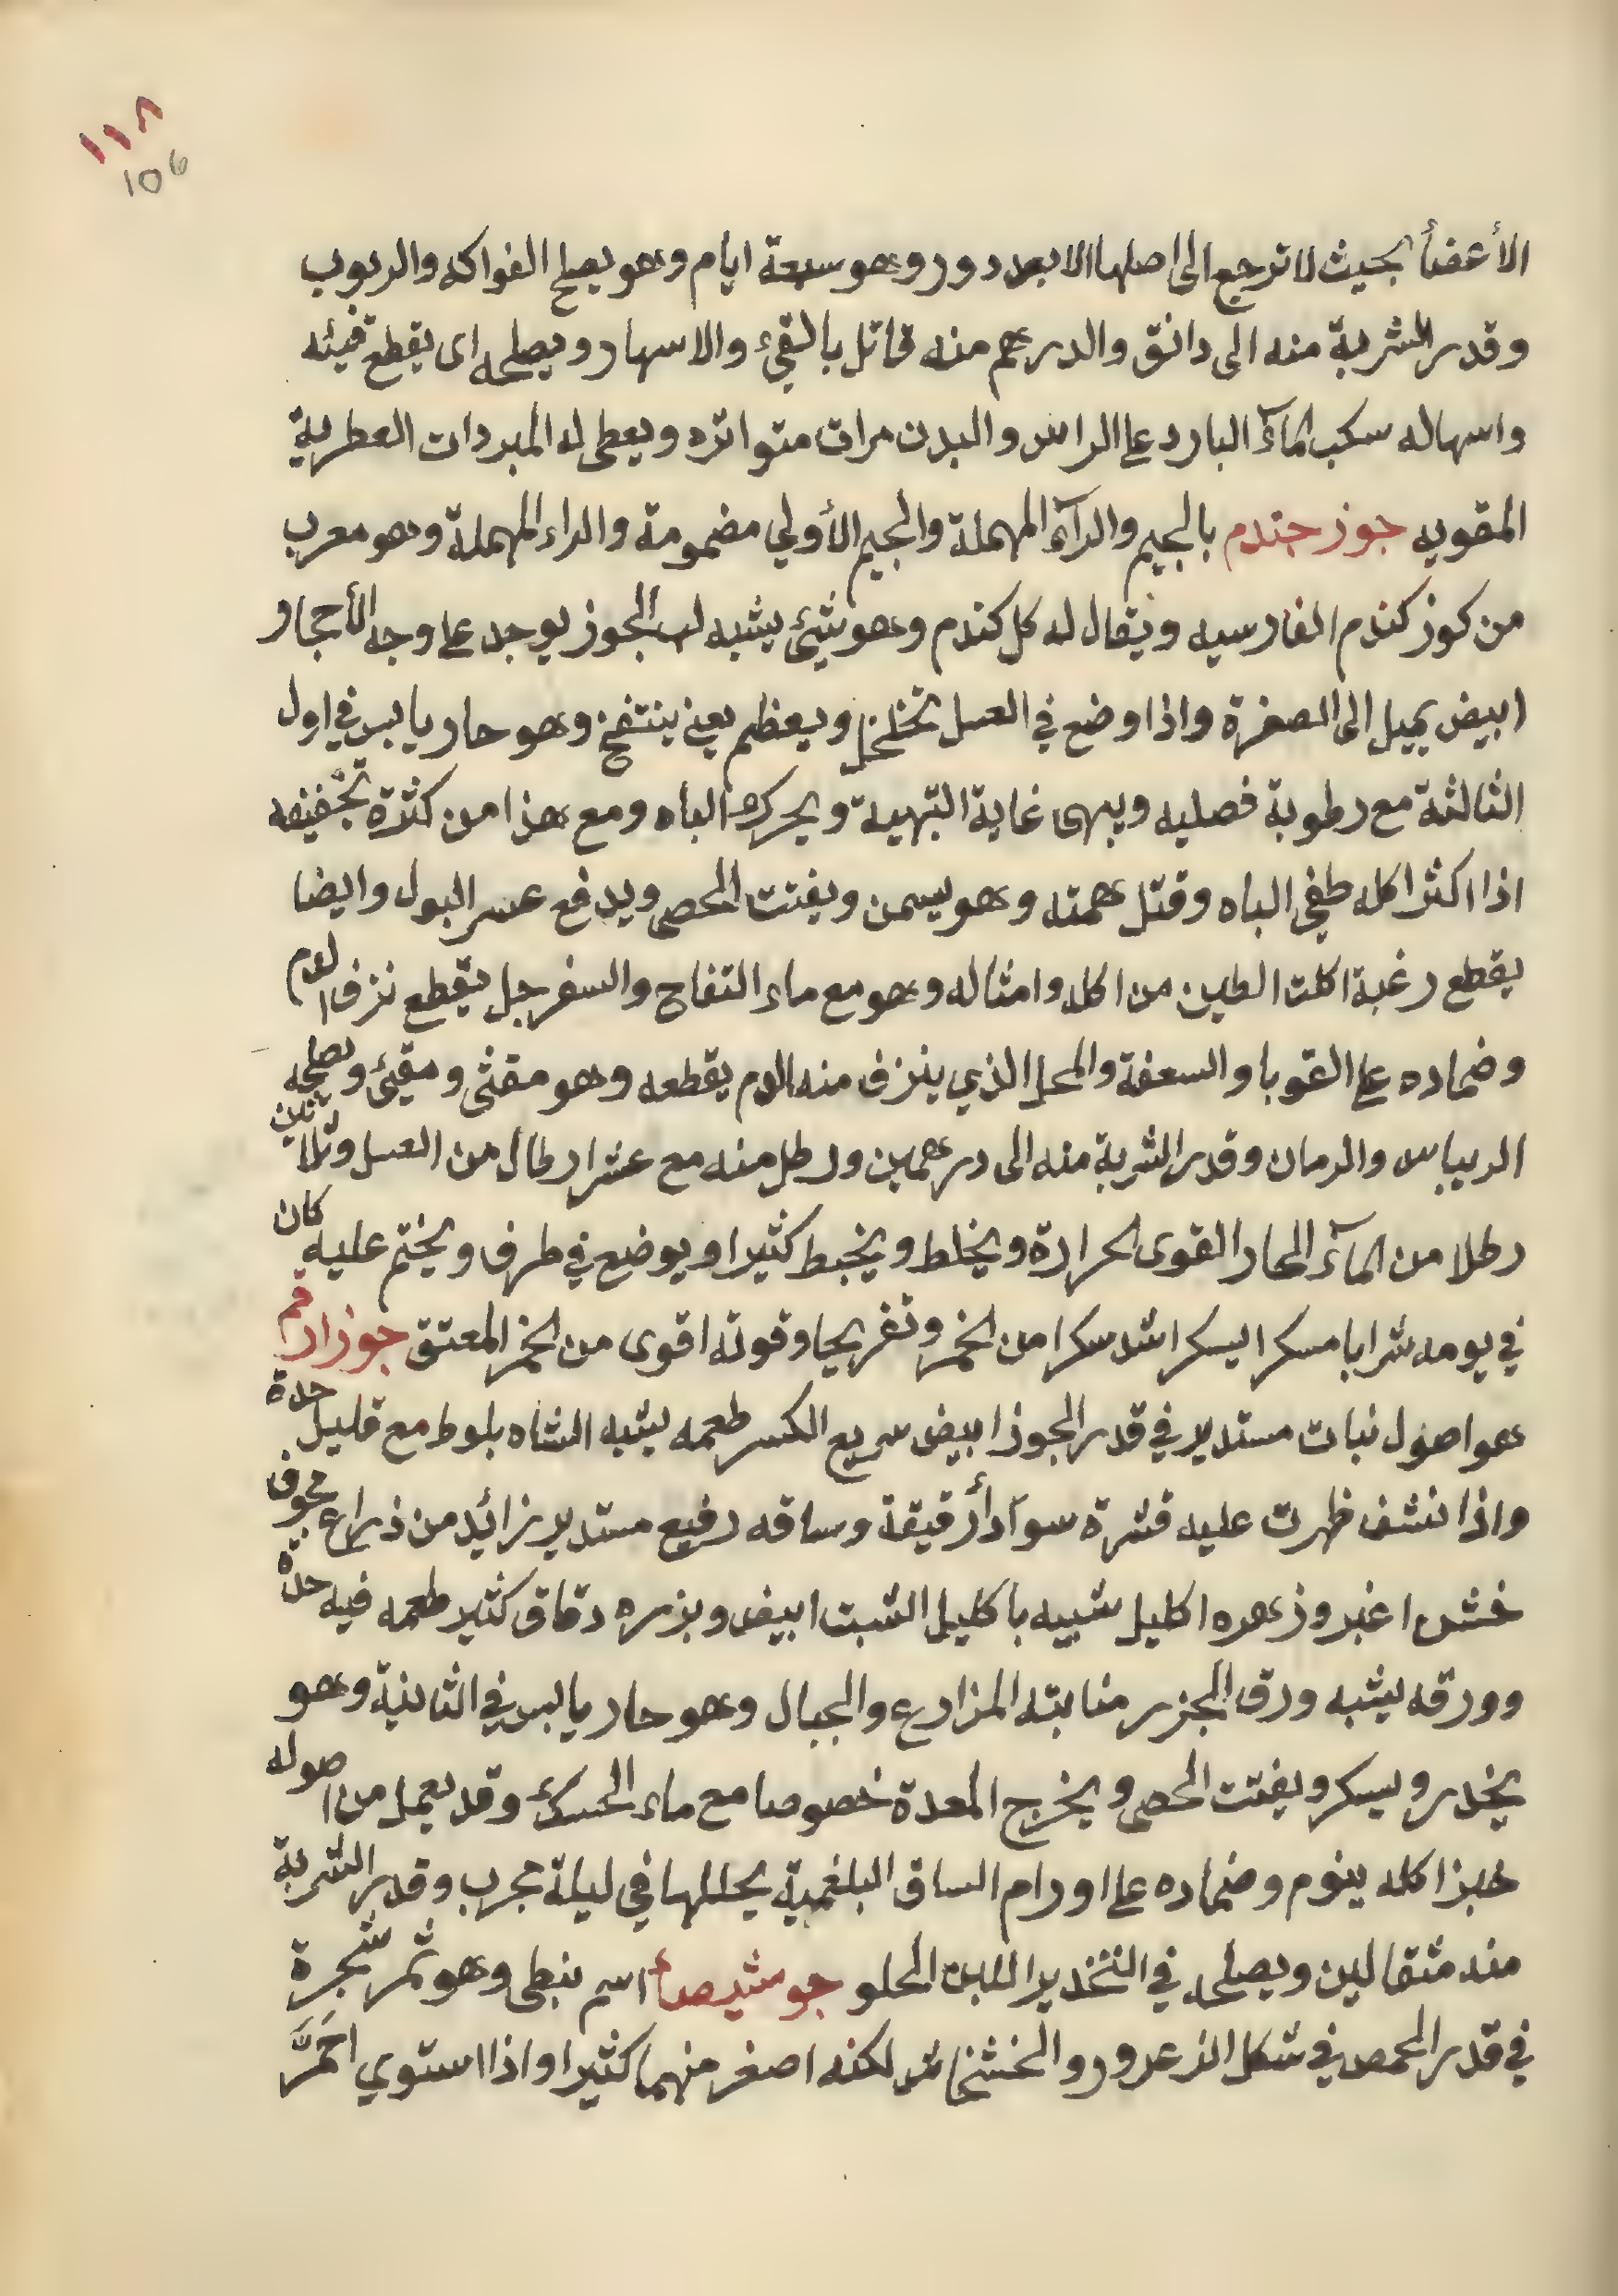 ١١٨
106
الأعضأ بحيث لا ترجع الى اصلها الا بعد دور وهو سبعة ايام وهو يصلح الفواكه والربوب
وقدر الشربة منه الى دانق والدرهم منه قاتل بالقيء والاسهار ويصلحه اى يقطع قيئه
واسهاله سكب المآء البارد على الراس والبدن مرات متواتره ويعطى له المبردات العطرية
المقويه جوز جندم بالجيم والرآء المهملة والجيم الأولي مضمومة والراء المهملة وهو معرب
من كوز كندم الفارسيه ويقال له كل كندم وهو شيئ يشبه لب الجوز يوجد على وجه الأحجار
ابيض يميل الى الصفرة واذا وضع في العسل تخلخل ويعظم يعني ينتفخ وهو حار يابس في اول
الثالثة مع رطوبة فصليه ويبهى غاية التبهية ويحرك الباه ومع هذا من كثرة تجفيفه
اذا اكثر اكله طفى الباه وقتل همته وهو يسمن ويفتت الحصى ويدفع عسر البول وايضا
يقطع رغبة اكلت الطين من اكله وامثاله وهو مع ماء التفاح والسفرجل يقطع نزف الدم
وضماده على القوبا والسعفة والمحل الذي ينزف منه الدم يقطعه وهو مقثى ومقيئ ويصلحه
الريباس والرمان وقدر الشربة منه الى درهمين ورطل منه مع عشر ارطال من العسل وثلاثين
رطلا من المآء الحار القوى الحرارة ويخلط ويخبط كثيرا ويوضع في طرف ويختم عليه كان
في يومه شرابا مسكرا يسكر اشد سكرا من الخمر وتفريحا وقوته اقوى من الخمر المعتق جوز ارقم
هو اصول نبات مستدير في قدر الجوز ابيض سريع الكسر طعمه يشبه الشاه بلوط مع قليل حدة
واذا نشف ظهرت عليه قشرة سوآدأ رقيقة وساقه رفيع مستدير زائد من ذراع مجوف
خشن اغبر وزهره اكليل شبيه باكليل الشبت ابيض وبزره دقاق كثير طعمه فيه حدة
وورقه يشبه ورق الجزر منابته المزارع والجبال وهو حار يابس في الثانية وهو
يخدر ويسكر ويفتت الحصى ويخرج المعدة خصوصا مع ماء الحسك وقد يعمل من اصوله
خبز اكله ينوم وضماده على اورام الساق البلغمية يحللها في ليلة مجرب وقدر الشربة
منه مثقالين ويصلحه في التخدير اللبن الحلو جوشيصأ اسم نبطى وهو ثمر شجرة
في قدر الحمص في شكل الزعرور والخشخاش لكنه اصغر منهما كثيرا واذا استوي احَمرَّ